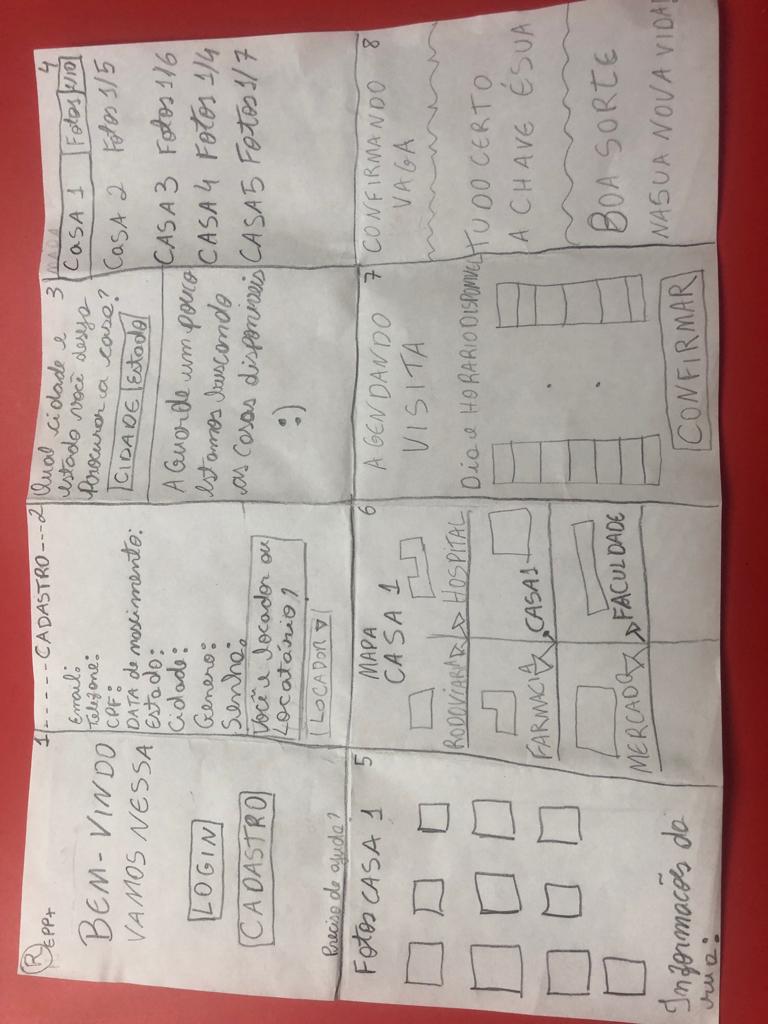 R EPP+ 1
BEM-VINDO
VAMOS NESSA
LOGIN
CADASTRO
Preciso de ajuda?
------CADASTRO---2
Email:
Telefone:
CPF:
DATA de nascimento:
Estado:
Cidade:
Genero:
Senha:
Você e locador ou
Locatário?
LOCADOR ▽
Qual cidade e 3
estado você deseja
Procurar a casa?
CIDADE Estado
AGuarde um pouco
estamos buscando
as casas disponiveis
:)
MAPA 4
CASA 1 Fotos 1/10
CASA 2 Fotos 1/5
CASA 3 Fotos 1/6
CASA 4 Fotos 1/4
CASA 5 Fotos 1/7
Fotos CASA 1 5
Informacões da
rua:
MAPA 6
CASA 1
RODOVIARIA HOSPITAL
FARMACIA CASA1
MERCADO FACULDADE
AGENDANDO 7
VISITA
Dia e HORARIO DISPONIVEL
CONFIRMAR
CONFIRMANDO 8
VAGA
TUDO CERTO
A CHAVE É SUA
BOA SORTE
NA SUA NOVA VIDA!